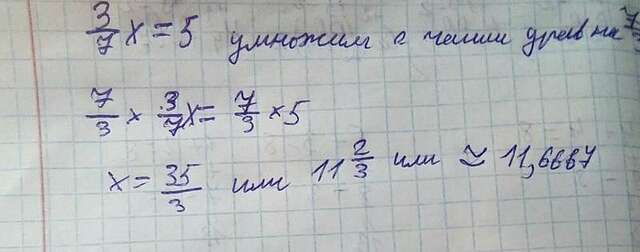 3/7 x = 5 умножим 2 части урав на 7/3
7/3 × 3/7 x = 7/3 × 5
x = 35/3 или 11 2/3 или ≃ 11,6667